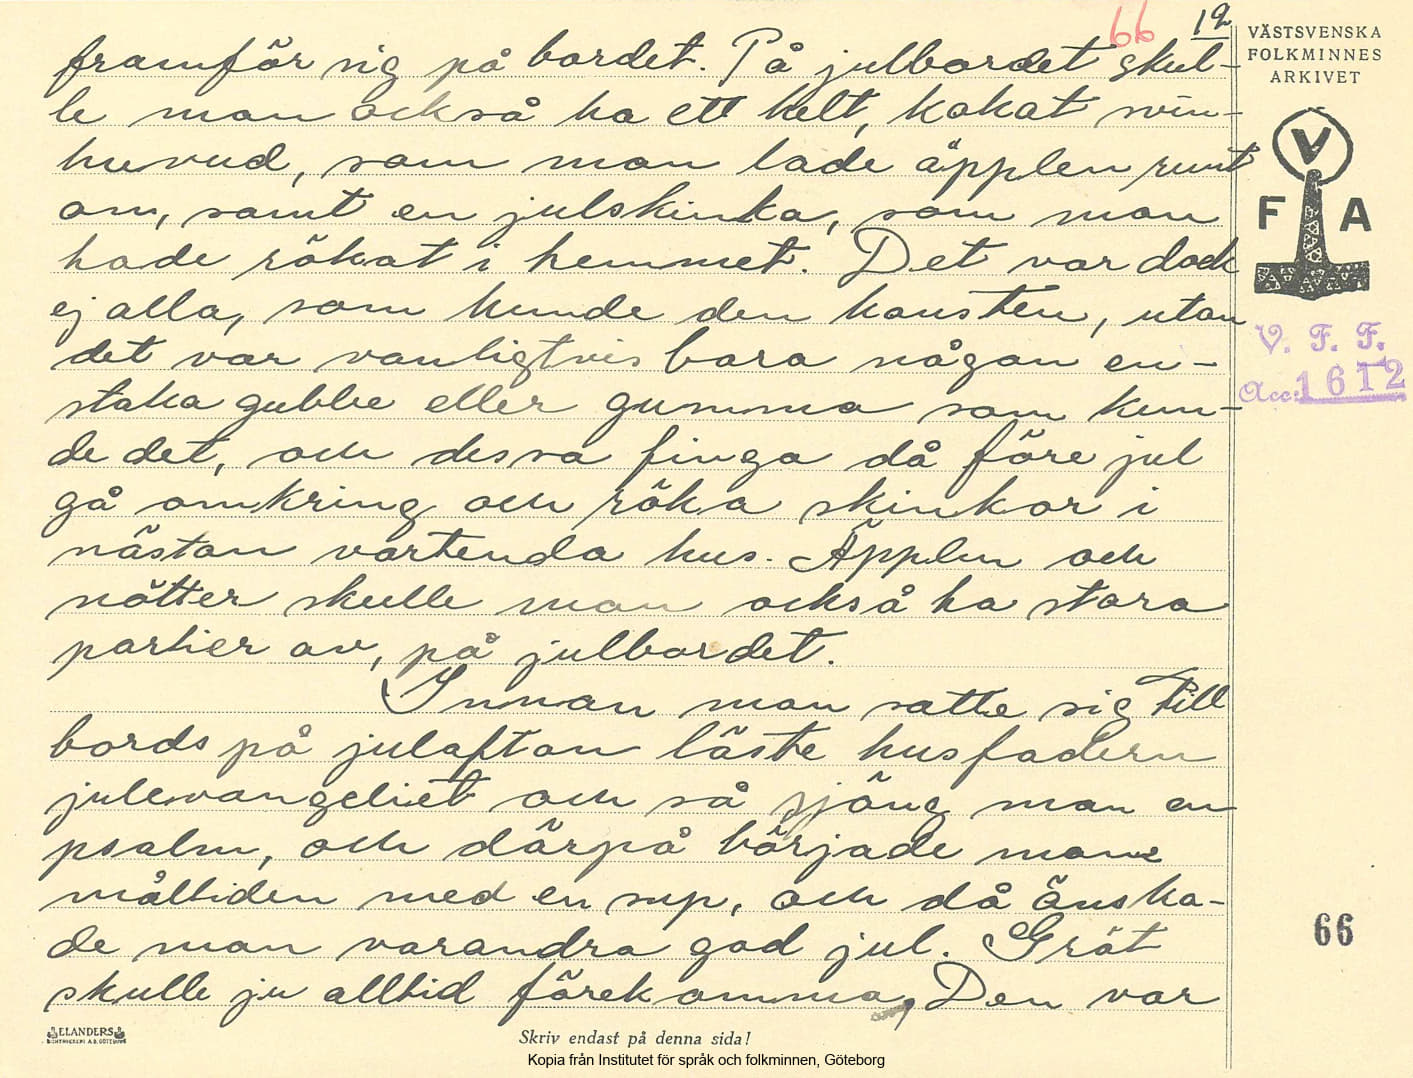 66 19
VÄSTSVENSKA
FOLKMINNES
ARKIVET
framför sig på bordet. På julbordet skul-
le man också ha ett helt, kokat svin-
huvud, som man lade äpplen runt
om, samt en julskinka, som man
hade rökat i hemmet. Det var dock
ej alla, som kunde den konsten, utan
det var vanligtvis bara någon en-
staka gubbe eller gumma som kun-
de det, och dessa finga då före jul
gå omkring och röka skinkor i
nästan vartenda hus. Äpplen och
nötter skulle man också ha stora
partier av, på julbordet.
Innan man satte sig till
bords på julafton läste husfadern
julevangeliet och så sjöng man en
psalm, och därpå började man
måltiden med en sup, och då önska-
de man varandra god jul. Gröt
skulle ju alltid förekomma, Den var
V
F A
V. F. F.
Acc: 1612
66
ELANDERS
Skriv endast på denna sida!
Kopia från Institutet för språk och folkminnen, Göteborg